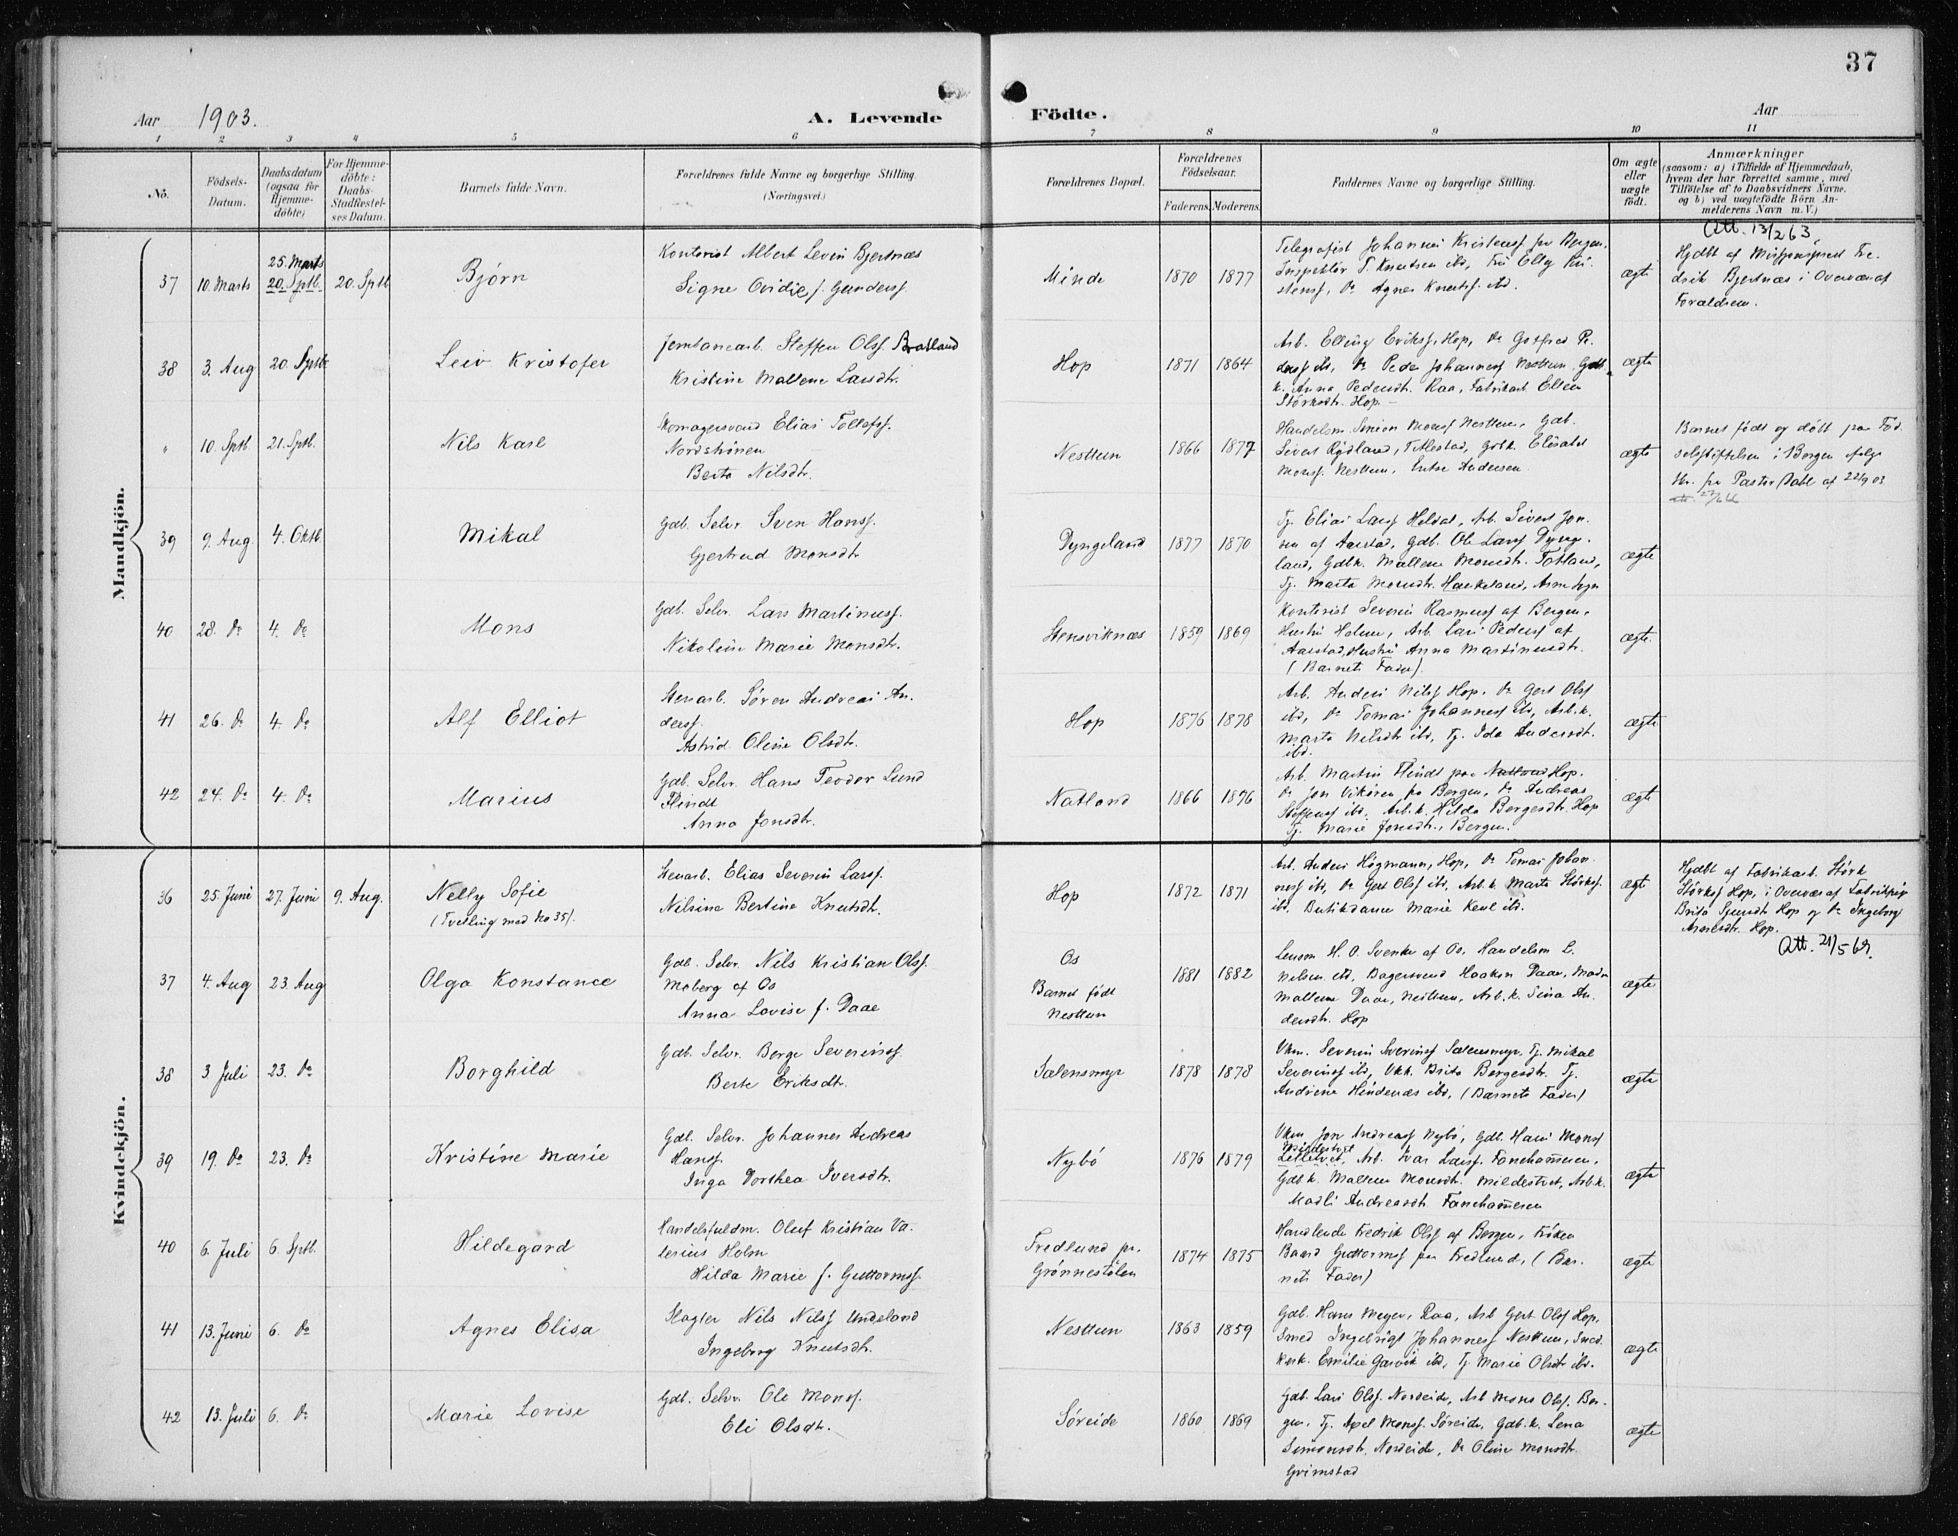 37
Aar 1903.
A. Levende Födte.
Aar
1 2 3 4 5 6 7 8 9 10 11
No.
Födsels-Datum.
Daabsdatum (ogsaa for Hjemme-döbte)
For Hjemme-döbte: Daabs-Stadfæstel-ses Datum.
Barnets fulde Navn.
Forældrenes fulde Navne og borgerlige Stilling. (Næringsvei.)
Forældrenes Bopæl.
Forældrenes Födselsaar.
Faderens. Moderens.
Faddernes Navne og borgerlige Stilling.
Om ægte eller uægte födt.
Anmærkninger
(saasom: a) i Tilfælde af Hjemmedaab,
hvem der har forrettet samme, med
Tilföielse af to Daabsvidners Navne.
og b) ved uægtefödte Börn An-
melderens Navn m.V.)
Mandkjön.
37 10. Marts 25. Marts 20. Sptb. 20. Sptb Bjørn
Kontorist Albert Levin Bjertnæs
Signe Ovidie f. Gunders.
Minde 1870 1877
Telegrafist Johannes Kristens. fra Bergen,
Inspektör T. Knutsen ibd, Fru Elly Kri-
stens, Do Agnes Knuts. ibd.
ægte
Att. 13/2 63
Hjdbt af Missionspræst Fre-
drik Bjertnæs i Overvær af
Forældrene.
38 3. Aug 20. Sptb Leiv Kristofer
Jernbanearb. Steffen Ols. Bratland
Kristine Mallene Larsdt.
Hop 1871 1864
Arb. Elling Eriks. Hop, Do Gotfred Pe-
ders. ibd, Do Peder Johannes. Nesttun, Gdb
k. Anna Pedersdt. Raa, Fabrikarb. Ellen
Störksdt. Hop.
ægte
" 10. Sptb. 21. Sptb. Nils Karl
Skomagersvend Elias Tollefs.
Nordströnen
Berta Nilsdt.
Nesttun 1866 1877
Handelsm. Simon Mons. Nesttun, Gdb.
Sivert Rydland, Titlestad, Gdbk. Elisabet
Mons. Nesttun, Enke Andersen.
ægte
Barnet født og døbt paa Fød-
selsstiftelsen i Bergen ifølge
Skr. fra Pastor Dahl af 22/9 03
39 9. Aug 4. Oktb Mikal
Gdb. Selv. Sven Hans.
Gjertrud Monsdt.
Dyngeland 1877 1870
Tj. Elias Lars. Heldal, Arb. Sivert Jon-
sen af Aarstad, Gdb. Ole Lars. Dynge-
land, Gdbk. Mallene Monsdt. Totland,
Tj. Marta Monsdt. Haukeland, Arne Sogn
ægte
40 28. Do 4. Do Mons
Gdb. Selv. Lars Martinus.
Nikoline Marie Monsdt.
Stensviknæs 1859 1869
Kontorist Severin Rasmus. af Bergen,
Hustru Helene, Arb. Lars Peders. af
Aarstad, Hustru Anna Martinusdt.
(Barnets Fader).
ægte.
41 26. Do 4. Do Alf Elliot
Stenarb. Søren Andreas An-
ders.
Astrid Oline Olsdt.
Hop 1876 1878
Arb. Anders Nils. Hop, Do Gert Ols.
ibd, Do Tomas Johannes. ibd, Arb.k.
Marta Nilsdt. ibd, Tj. Ida Andersdt.
ibd.
ægte
42 24. Do 4. Do Marius
Gdb. Selv. Hans Teodor Lund
Flindt
Anna Jonsdt.
Natland 1866 1896
Arb. Martin Flindt paa Natland Hop.
Do Jon Vikören fra Bergen, Do Andreas
Steffens. ibd, Arb.k. Hilda Børgesdt. Hop
Tj. Marie Jonsdt., Bergen.
ægte
Kvindekjön.
36 25. Juni 27. Juni 9. Aug. Nelly Sofie
(Tvilling med No 35).
Stenarb. Elias Severin Lars.
Nilsine Bertine Knutsdt.
Hop 1872 1871
Arb. Anders Högmann, Hop, Do Tomas Johan-
nes. ibd, Do Gert Ols. ibd, Arb.k. Marta Störks.
ibd, Butikdame Marie Keul ibd.
ægte
Hjdbt af Fabrikarb. Störk
Störks. Hop, i Overvær af Fabrikpige
Brita Sjursdt. Hop og Do Ingeborg
Hop.
Att. 21/5 69.
37 4. Aug 23. Aug Olga Konstance
Gdb. Selv. Nils Kristian Ols.
Moberg af Os
Anna Lovise f. Daae
Os
Barnet født
Nesttun
1881 1882
Lensm. H. O. Svenke af Os, Handelsm L.
Nilsen ibd, Bagersvend Haakon Daae, Madm
Mallene Daae, Nesttun, Arb.k. Sina An-
dersdt. Hop
ægte
38 3 Juli 23. Do Borghild
Gdb. Selv. Børge Severins.
Berte Eriksdt.
Sælensmyr 1878 1878
Ukm. Severin Severins. Sælensmyr, Tj. Mikal
Severins. ibd, Ukk. Brita Børgesdt. Tj.
Andrine Hindenæs ibd, (Barnets Fader)
ægte
39 19. Do 23. Do Kristine Marie
Gdb. Selv. Johannes Andreas
Hans.
Inga Dorthea Iversdt.
Nybø 1876 1879
Ukm Jon Andreas. Nybø, Gdb. Hans Mons.
Mildestvet
Litletvet, Arb. Ivar Lars. Fanehammeren,
Gdbk. Mallene Monsdt. Mildestvet, Arb.k.
Madli Andreasdt. Fanehammeren
ægte
40 6. Juli 6. Sptb. Hildegard
Handelsfuldm. Oluf Kristian Va-
lerius Holm
Hilda Marie f. Guttorms.
Fredlund pr.
Grønnestølen
1874 1875
Handlende Fredrik Ols. af Bergen, Frøken
Baard Guttorms. paa Fredlund, (Bar-
nets Fader)
ægte
41 13. Juni 6. Do Agnes Elisa
Slagter Nils Nils. Undeland
Ingeborg Knutsdt.
Nesttun 1863 1859
Gdb. Hans Meyer, Raa, Arb Gert Ols. Hop,
Smed Ingebrigt Johannes. Nesttun, Smed-
kerk. Emilie Garvik ibd, Tj. Marie Olsdt ibd.
ægte
42 13. Juli 6. Do Marie Lovise
Gdb. Selv. Ole Mons.
Eli Olsdt.
Søreide 1860 1869
Gdb. Lars Ols. Nordeide, Arb Mons Ols. Ber-
gen, Tj. Axel Mons. Søreide, Gdb.k. Lena
Simonsdt. Nordeide, Do Oline Monsdt.
Grimstad
ægte